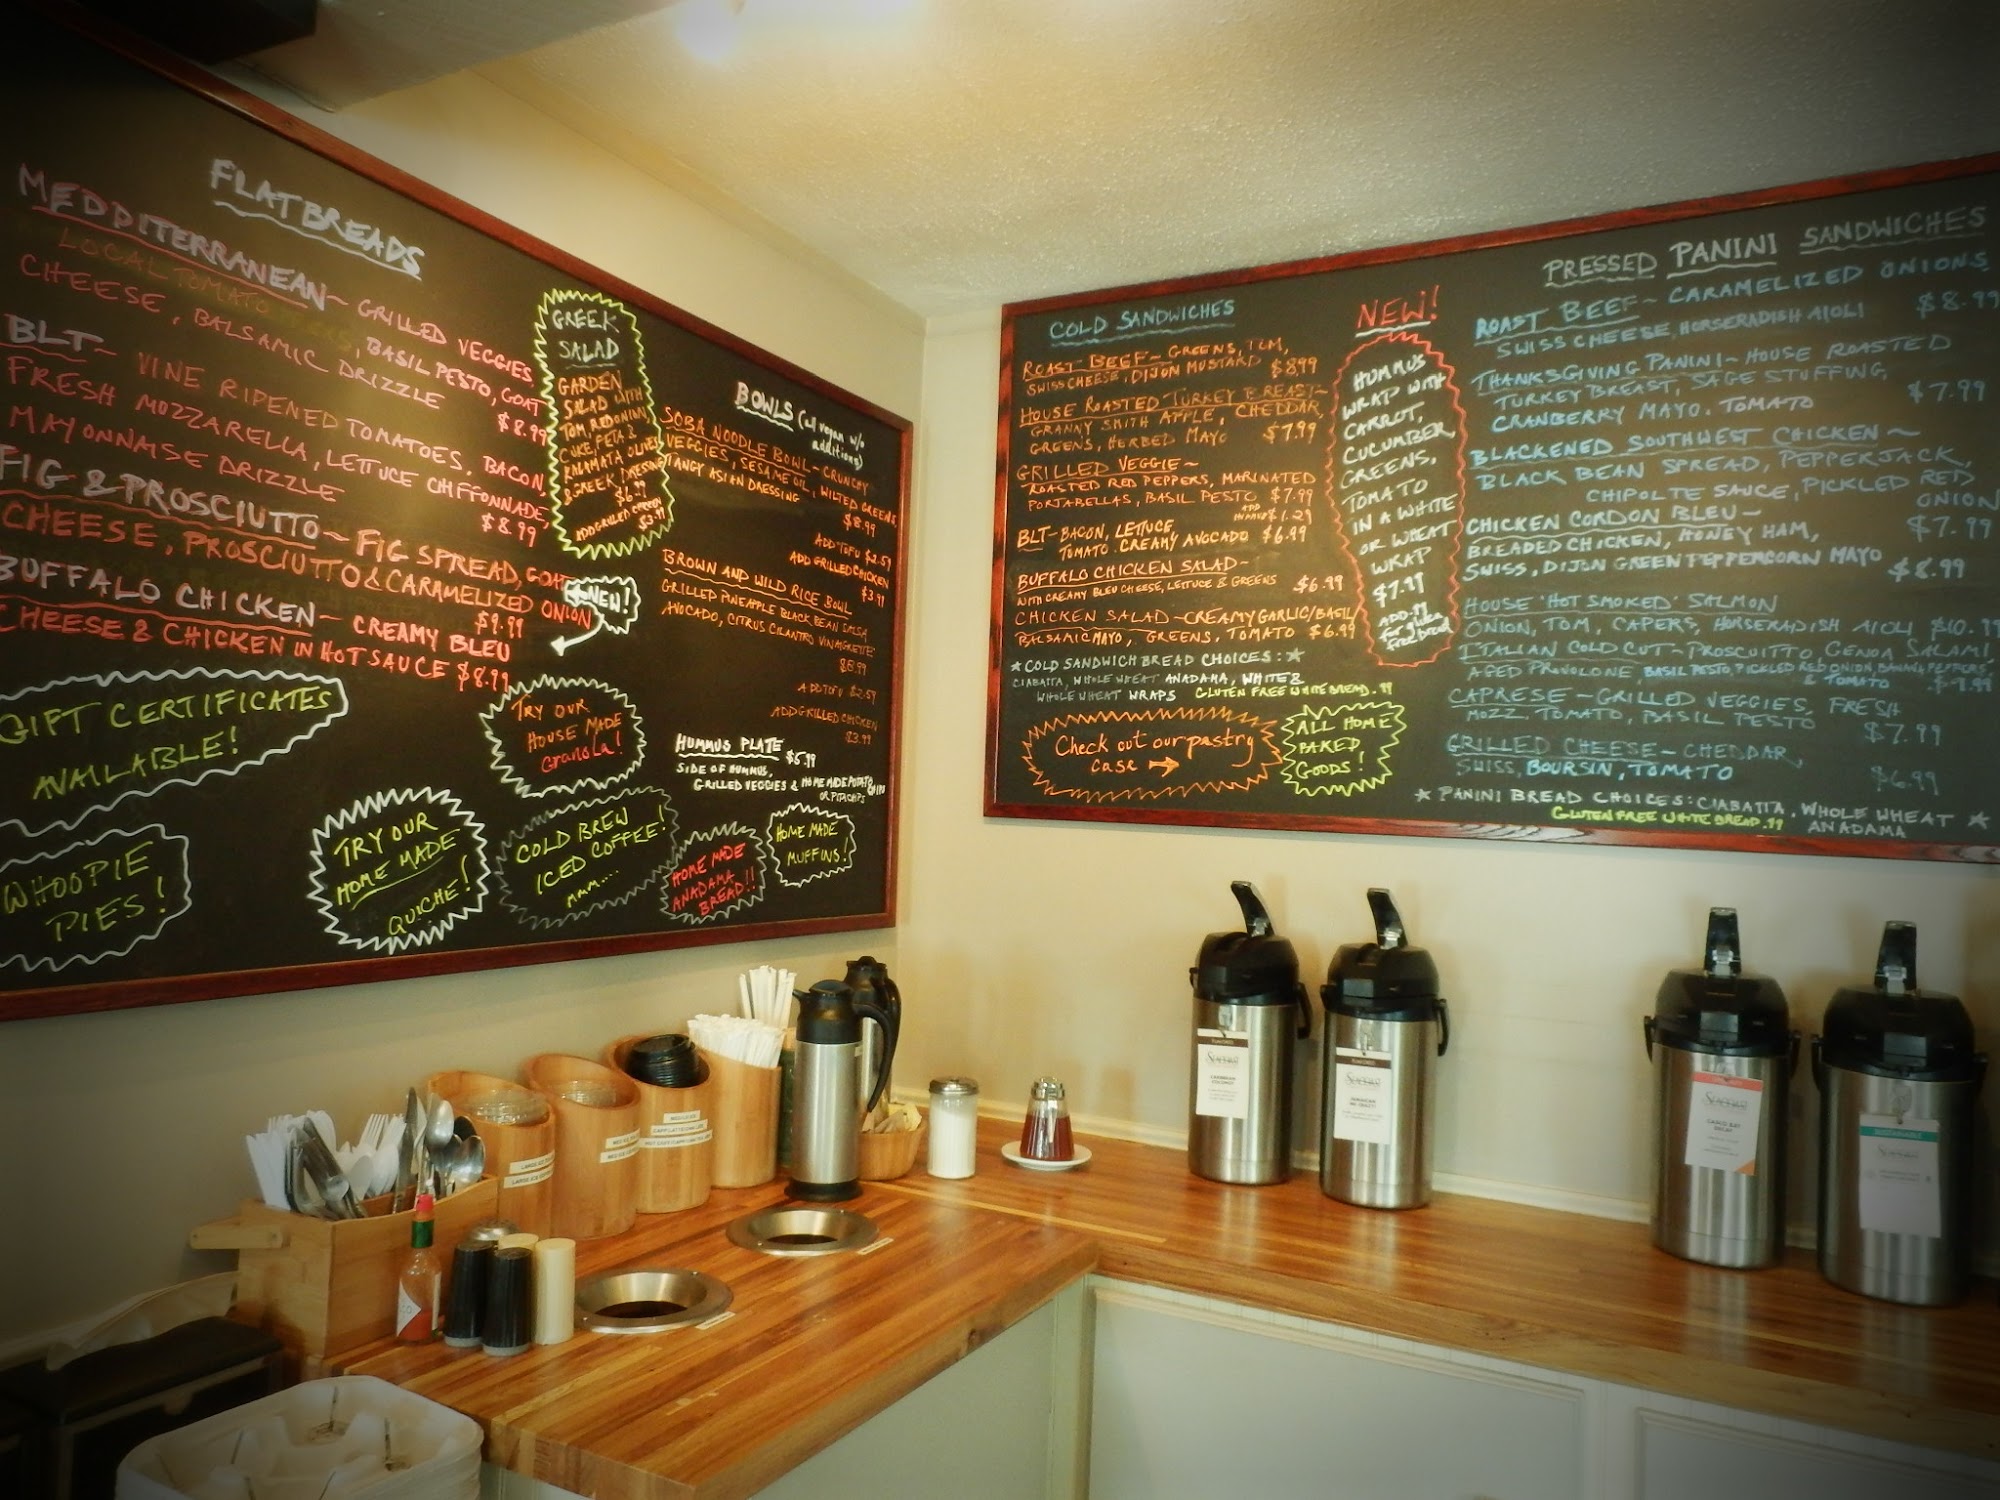 FLATBREADS
MEDDITERRANEAN~ GRILLED VEGGIES,
LOCAL TOMATO, BASIL PESTO, GOAT
CHEESE, BALSAMIC DRIZZLE $8.99
BLT~ VINE RIPENED TOMATOES, BACON,
FRESH MOZZARELLA, LETTUCE CHIFFONNADE,
MAYONNAISE DRIZZLE $8.99
FIG & PROSCIUTTO~ FIG SPREAD, GOAT
CHEESE, PROSCIUTTO & CARAMELIZED ONION
$9.99
BUFFALO CHICKEN~ CREAMY BLEU
CHEESE & CHICKEN IN HOT SAUCE $8.99
NEW!
GIFT CERTIFICATES
AVAILABLE!
WHOOPIE
PIES!
TRY OUR
HOME MADE
QUICHE!
TRY OUR
HOUSE MADE
Granola!
COLD BREW
ICED COFFEE!
mmm....
HOME MADE
ANADAMA
BREAD!!
HOME MADE
MUFFINS!
GREEK
SALAD
GARDEN
SALAD WITH
TOM, RED ONION,
CUKE, FETA &
KALAMATA OLIVES
& GREEK DRESSING
$6.99
ADD GRILLED CHICKEN
$3.99
BOWLS (all vegan w/o
additions)
SOBA NOODLE BOWL~ CRUNCHY
VEGGIES, SESAME OIL, WILTED GREENS,
TANGY ASIAN DRESSING
$8.99
ADD TOFU $2.59
ADD GRILLED CHICKEN
$3.99
BROWN AND WILD RICE BOWL
GRILLED PINEAPPLE BLACK BEAN SALSA
AVOCADO, CITRUS CILANTRO VINAIGRETTE
$8.99
ADD TOFU $2.59
ADD GRILLED CHICKEN
$3.99
HUMMUS PLATE $5.99
SIDE OF HUMMUS,
GRILLED VEGGIES & HOME MADE POTATO CHIPS
OR PITA CHIPS
COLD SANDWICHES
ROAST BEEF~ GREENS, TOM,
SWISS CHEESE, DIJON MUSTARD $8.99
HOUSE ROASTED TURKEY BREAST~
GRANNY SMITH APPLE, CHEDDAR,
GREENS, HERBED MAYO $7.99
GRILLED VEGGIE~
ROASTED RED PEPPERS, MARINATED
PORTABELLAS, BASIL PESTO $7.99
ADD HUMMUS $1.29
BLT- BACON, LETTUCE,
TOMATO, CREAMY AVOCADO $6.99
BUFFALO CHICKEN SALAD~
WITH CREAMY BLEU CHEESE, LETTUCE & GREENS $6.99
CHICKEN SALAD~CREAMY GARLIC/BASIL
BALSAMIC MAYO, GREENS, TOMATO $6.99
★COLD SANDWICH BREAD CHOICES:★
CIABATTA, WHOLE WHEAT ANADAMA, WHITE &
WHOLE WHEAT WRAPS GLUTEN FREE WHITE BREAD .99
Check out our pastry
case →
ALL HOME
BAKED
GOODS!
NEW!
HUMMUS
WRAP WITH
CARROT,
CUCUMBER,
GREENS,
TOMATO
IN A WHITE
OR WHEAT
WRAP
$7.99
ADD .99
for gluten
free bread
PRESSED PANINI SANDWICHES
ROAST BEEF~ CARAMELIZED ONIONS
SWISS CHEESE, HORSERADISH AIOLI $8.99
THANKSGIVING PANINI~ HOUSE ROASTED
TURKEY BREAST, SAGE STUFFING,
CRANBERRY MAYO, TOMATO $7.99
BLACKENED SOUTHWEST CHICKEN~
BLACK BEAN SPREAD, PEPPERJACK,
CHIPOLTE SAUCE, PICKLED RED
ONION
$7.99
CHICKEN CORDON BLEU~
BREADED CHICKEN, HONEY HAM,
SWISS, DIJON GREEN PEPPERCORN MAYO $8.99
HOUSE "HOT SMOKED" SALMON
ONION, TOM, CAPERS, HORSERADISH AIOLI $10.99
ITALIAN COLD CUT~PROSCUITTO, GENOA SALAMI,
AGED PROVOLONE, BASIL PESTO, PICKLED RED ONION, BANANA PEPPERS,
& TOMATO $9.99
CAPRESE~ GRILLED VEGGIES, FRESH
MOZZ, TOMATO, BASIL PESTO $7.99
GRILLED CHEESE~ CHEDDAR,
SWISS, BOURSIN, TOMATO $6.99
★ PANINI BREAD CHOICES: CIABATTA, WHOLE WHEAT ★
ANADAMA
GLUTEN FREE WHITE BREAD .99